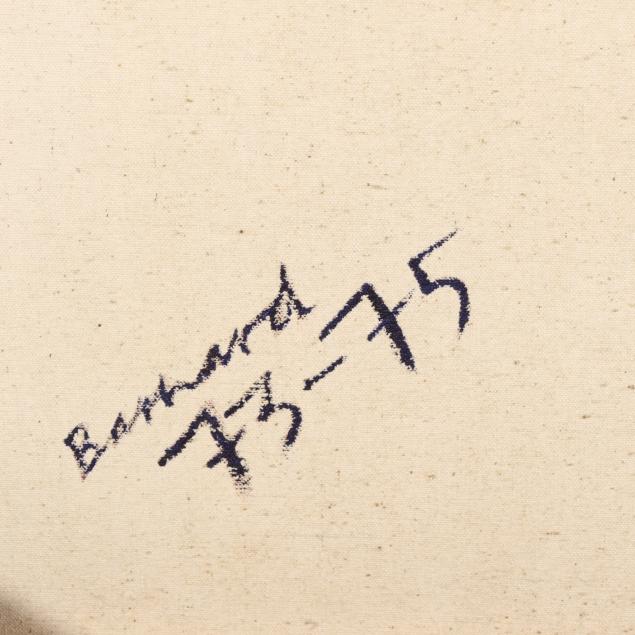 Barnard
73-75